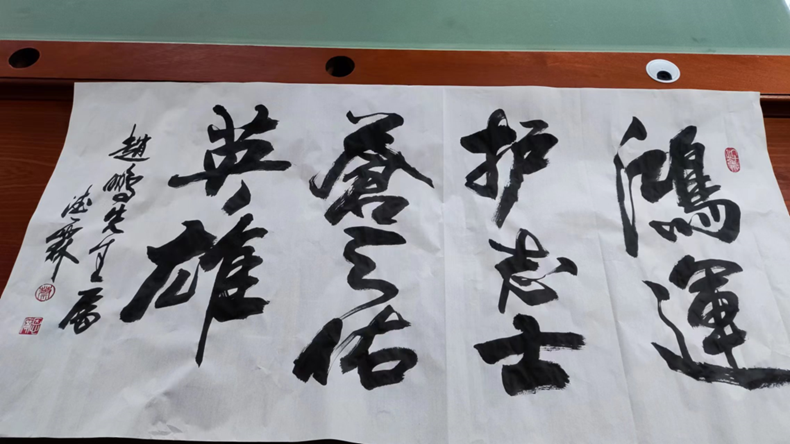 鴻運
护志士
蒼天佑
英雄
趙鵬先生属